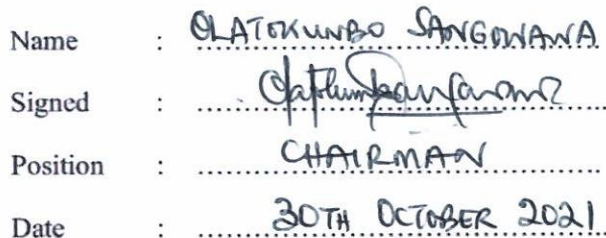 Name : OLATOKUNBO SANGOWAWA
Signed :
Position : CHAIRMAN
Date : 30TH OCTOBER 2021